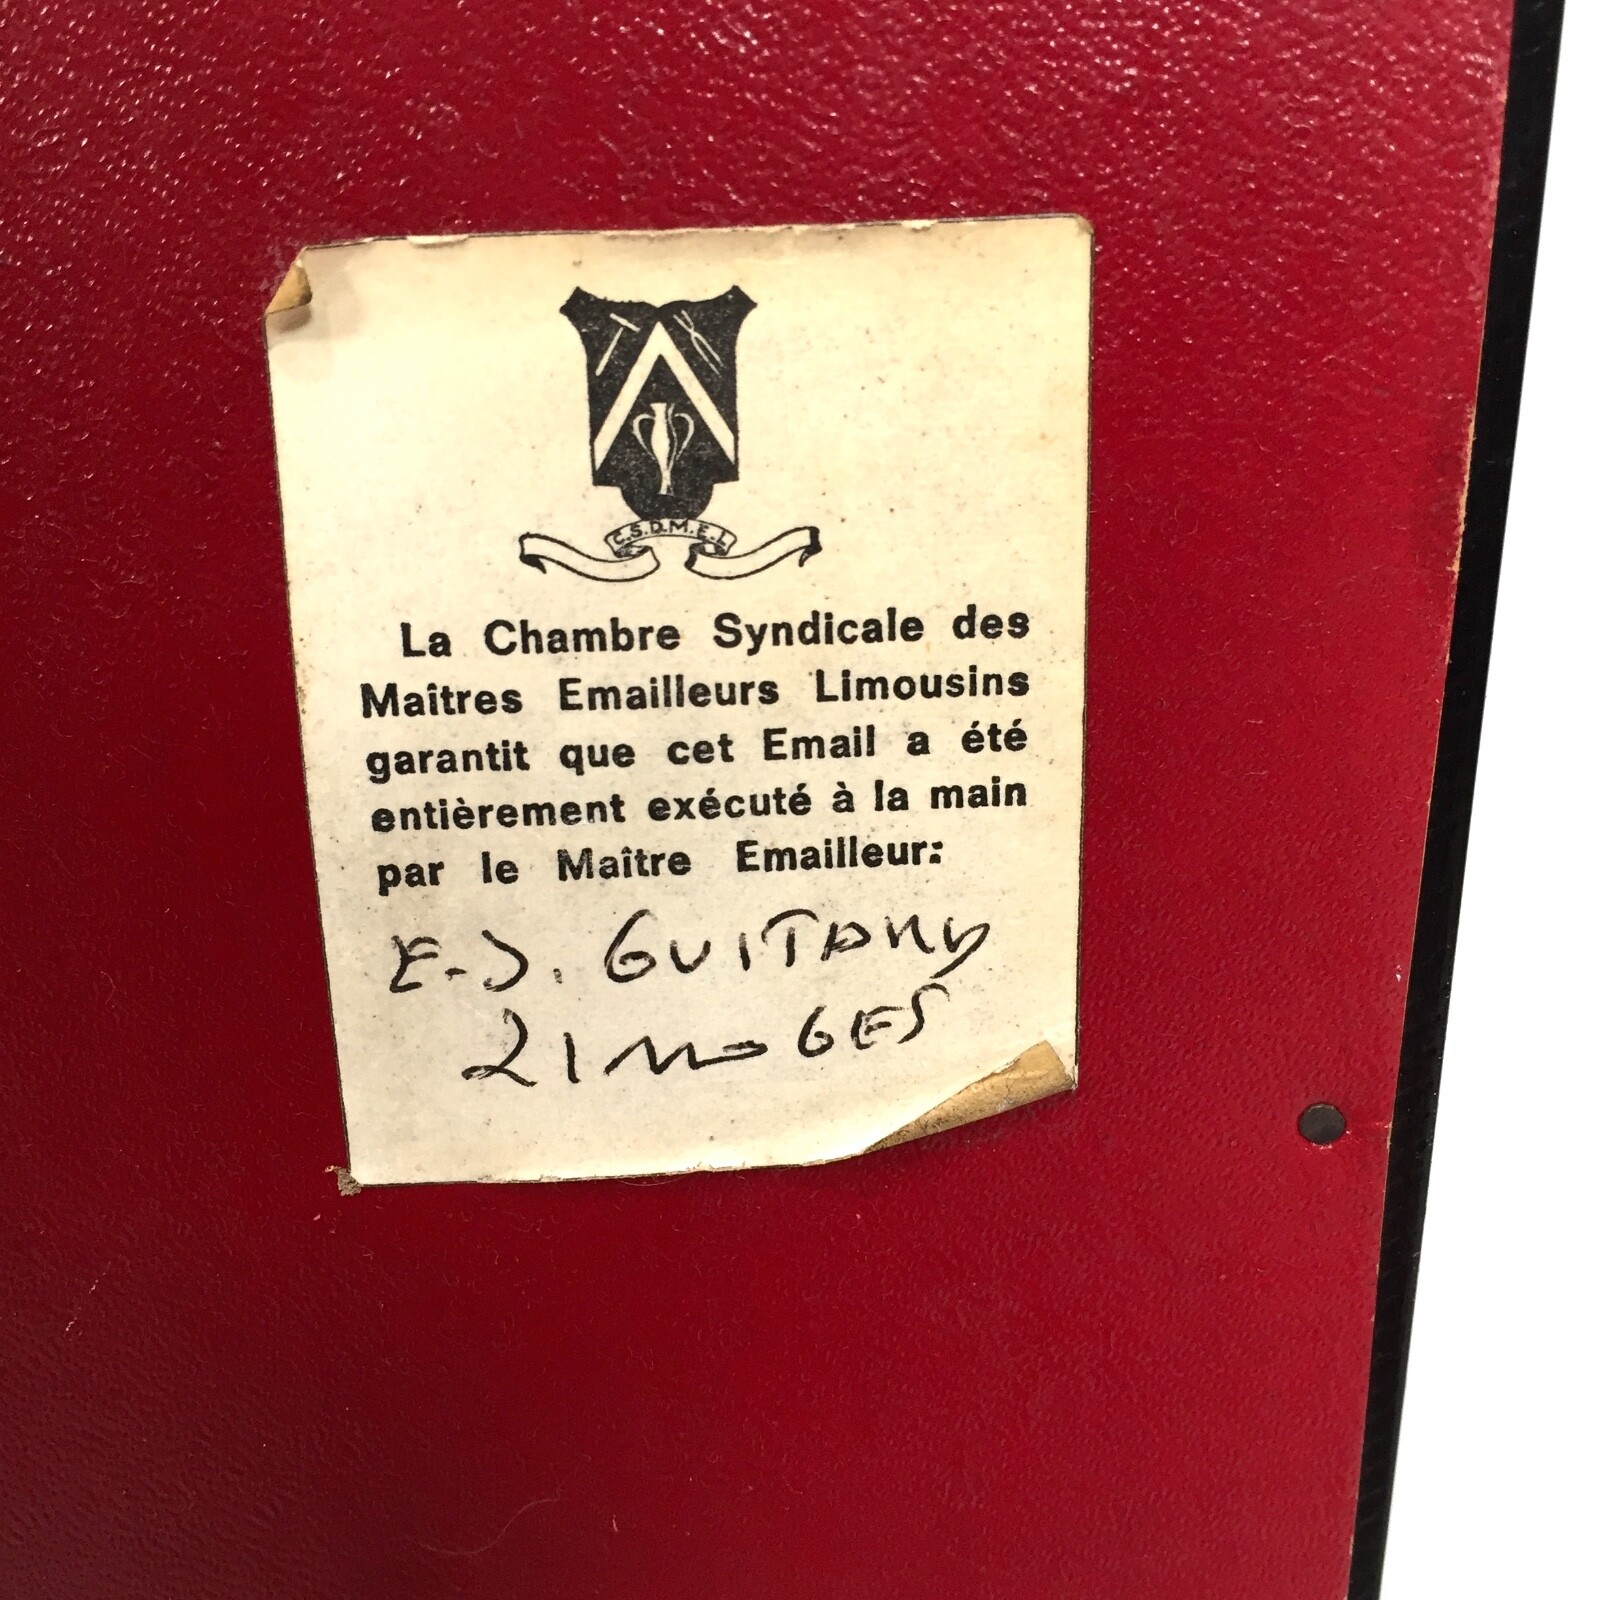 C.S.D.M.E.L
La Chambre Syndicale des
Maîtres Emailleurs Limousins
garantit que cet Email a été
entièrement exécuté à la main
par le Maître Emailleur:
E.J. GUITARD
LIMOGES